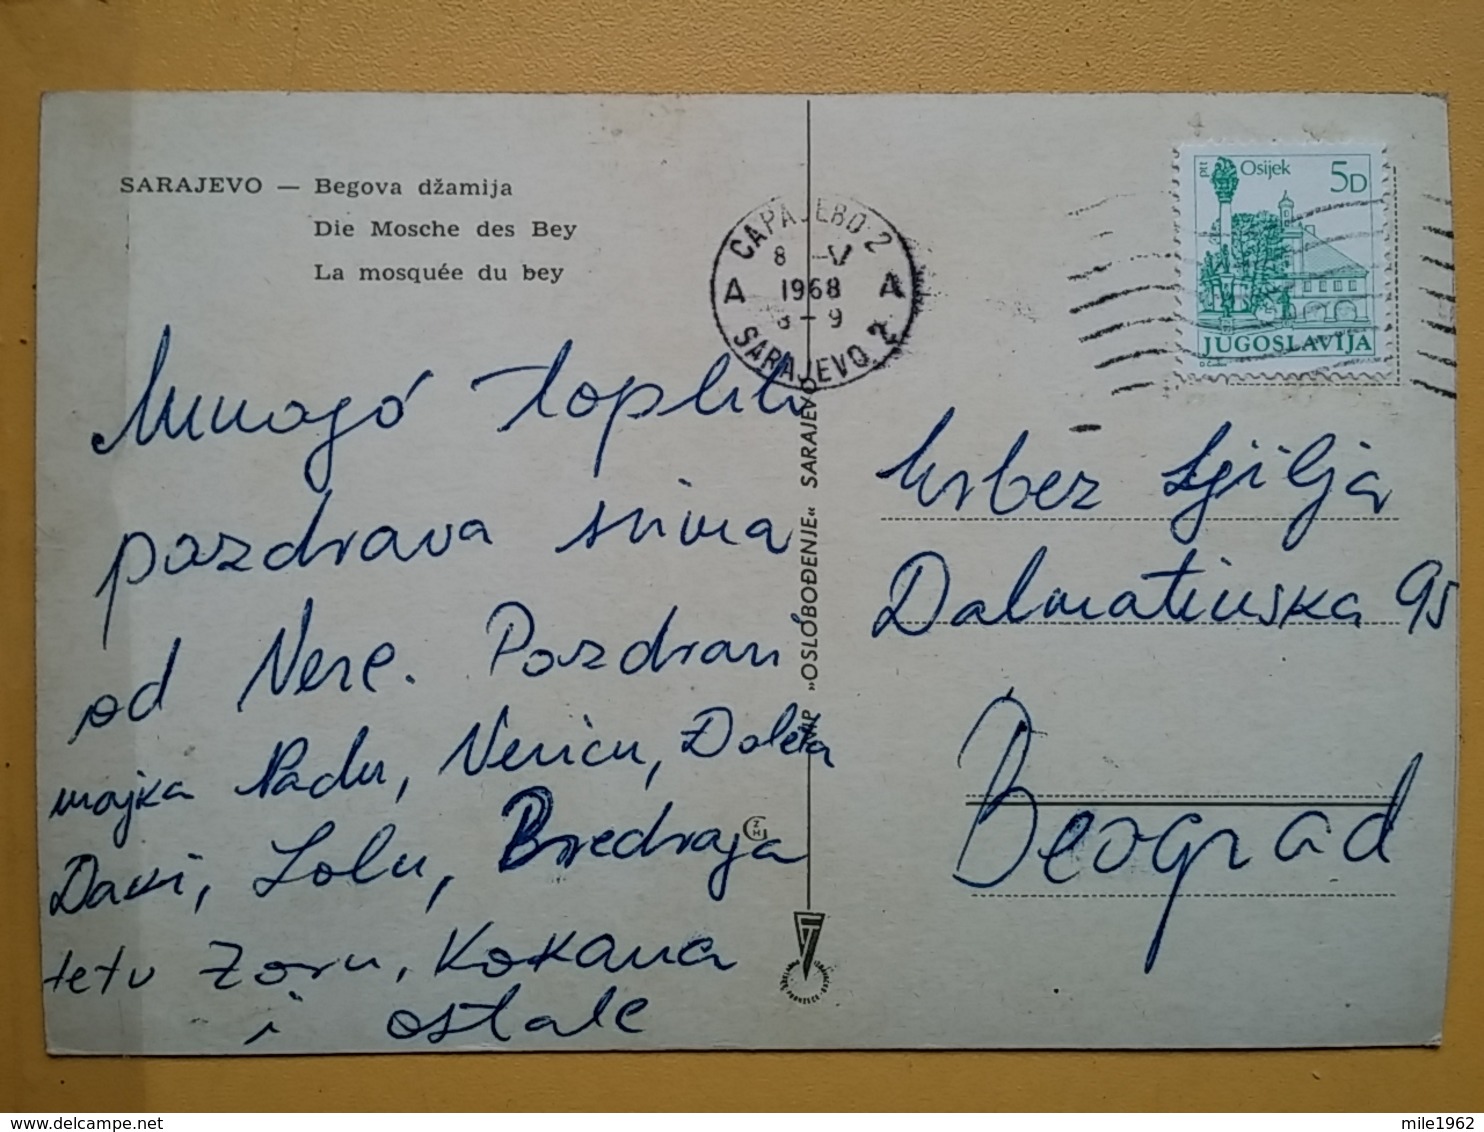 SARAJEVO — Begova džamija
Die Mosche des Bey
La mosquée du bey
САРАЈЕВО 2
8 -V
1968
8-9
A A
SARAJEVO 2
ptt Osijek 5D
JUGOSLAVIJA
Mnogo toplih
pozdrava svima
od Nene. Pozdravi
majka Radu, Nericu, Doleta
Davi, Lolu, Predraga
tetu Zoru, Kokana
i ostale
"OSLOBOĐENJE" SARAJEVO
Urbez Ljilja
Dalmatinska 95
Beograd
delcampe.net
mile1962